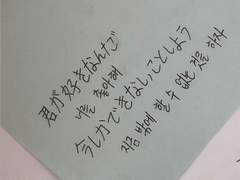 君が好きなんだ
나를 좋아해
今しかできないことしよう
지금 밖에 할 수 없는 것을 하자